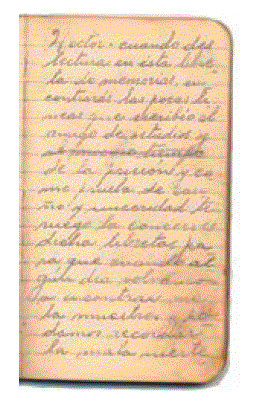 Hector - cuando des
lectura en esta libre
ta de memorias, en
contrarás las pocas li
neas que escribió el
amigo de estudios y
al mismo tiempo
de la prisión y co
mo prueba de cari
ño y sinceridad te
ruego la conserves
dicha libreta pa
ra que cuando al
gún dia volvamos
a encontrar
la muestres y re
damos recordar
la mala suerte